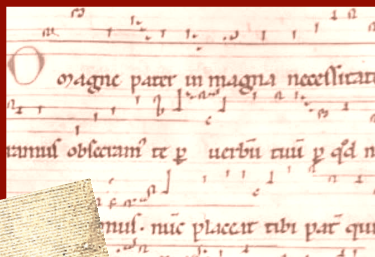 O magne pater in magna necessitate
ramus obsecram᷒ te ꝑ uerbū tuū ꝑ qđ n
mus. nūc placeat tibi pat̄ qui